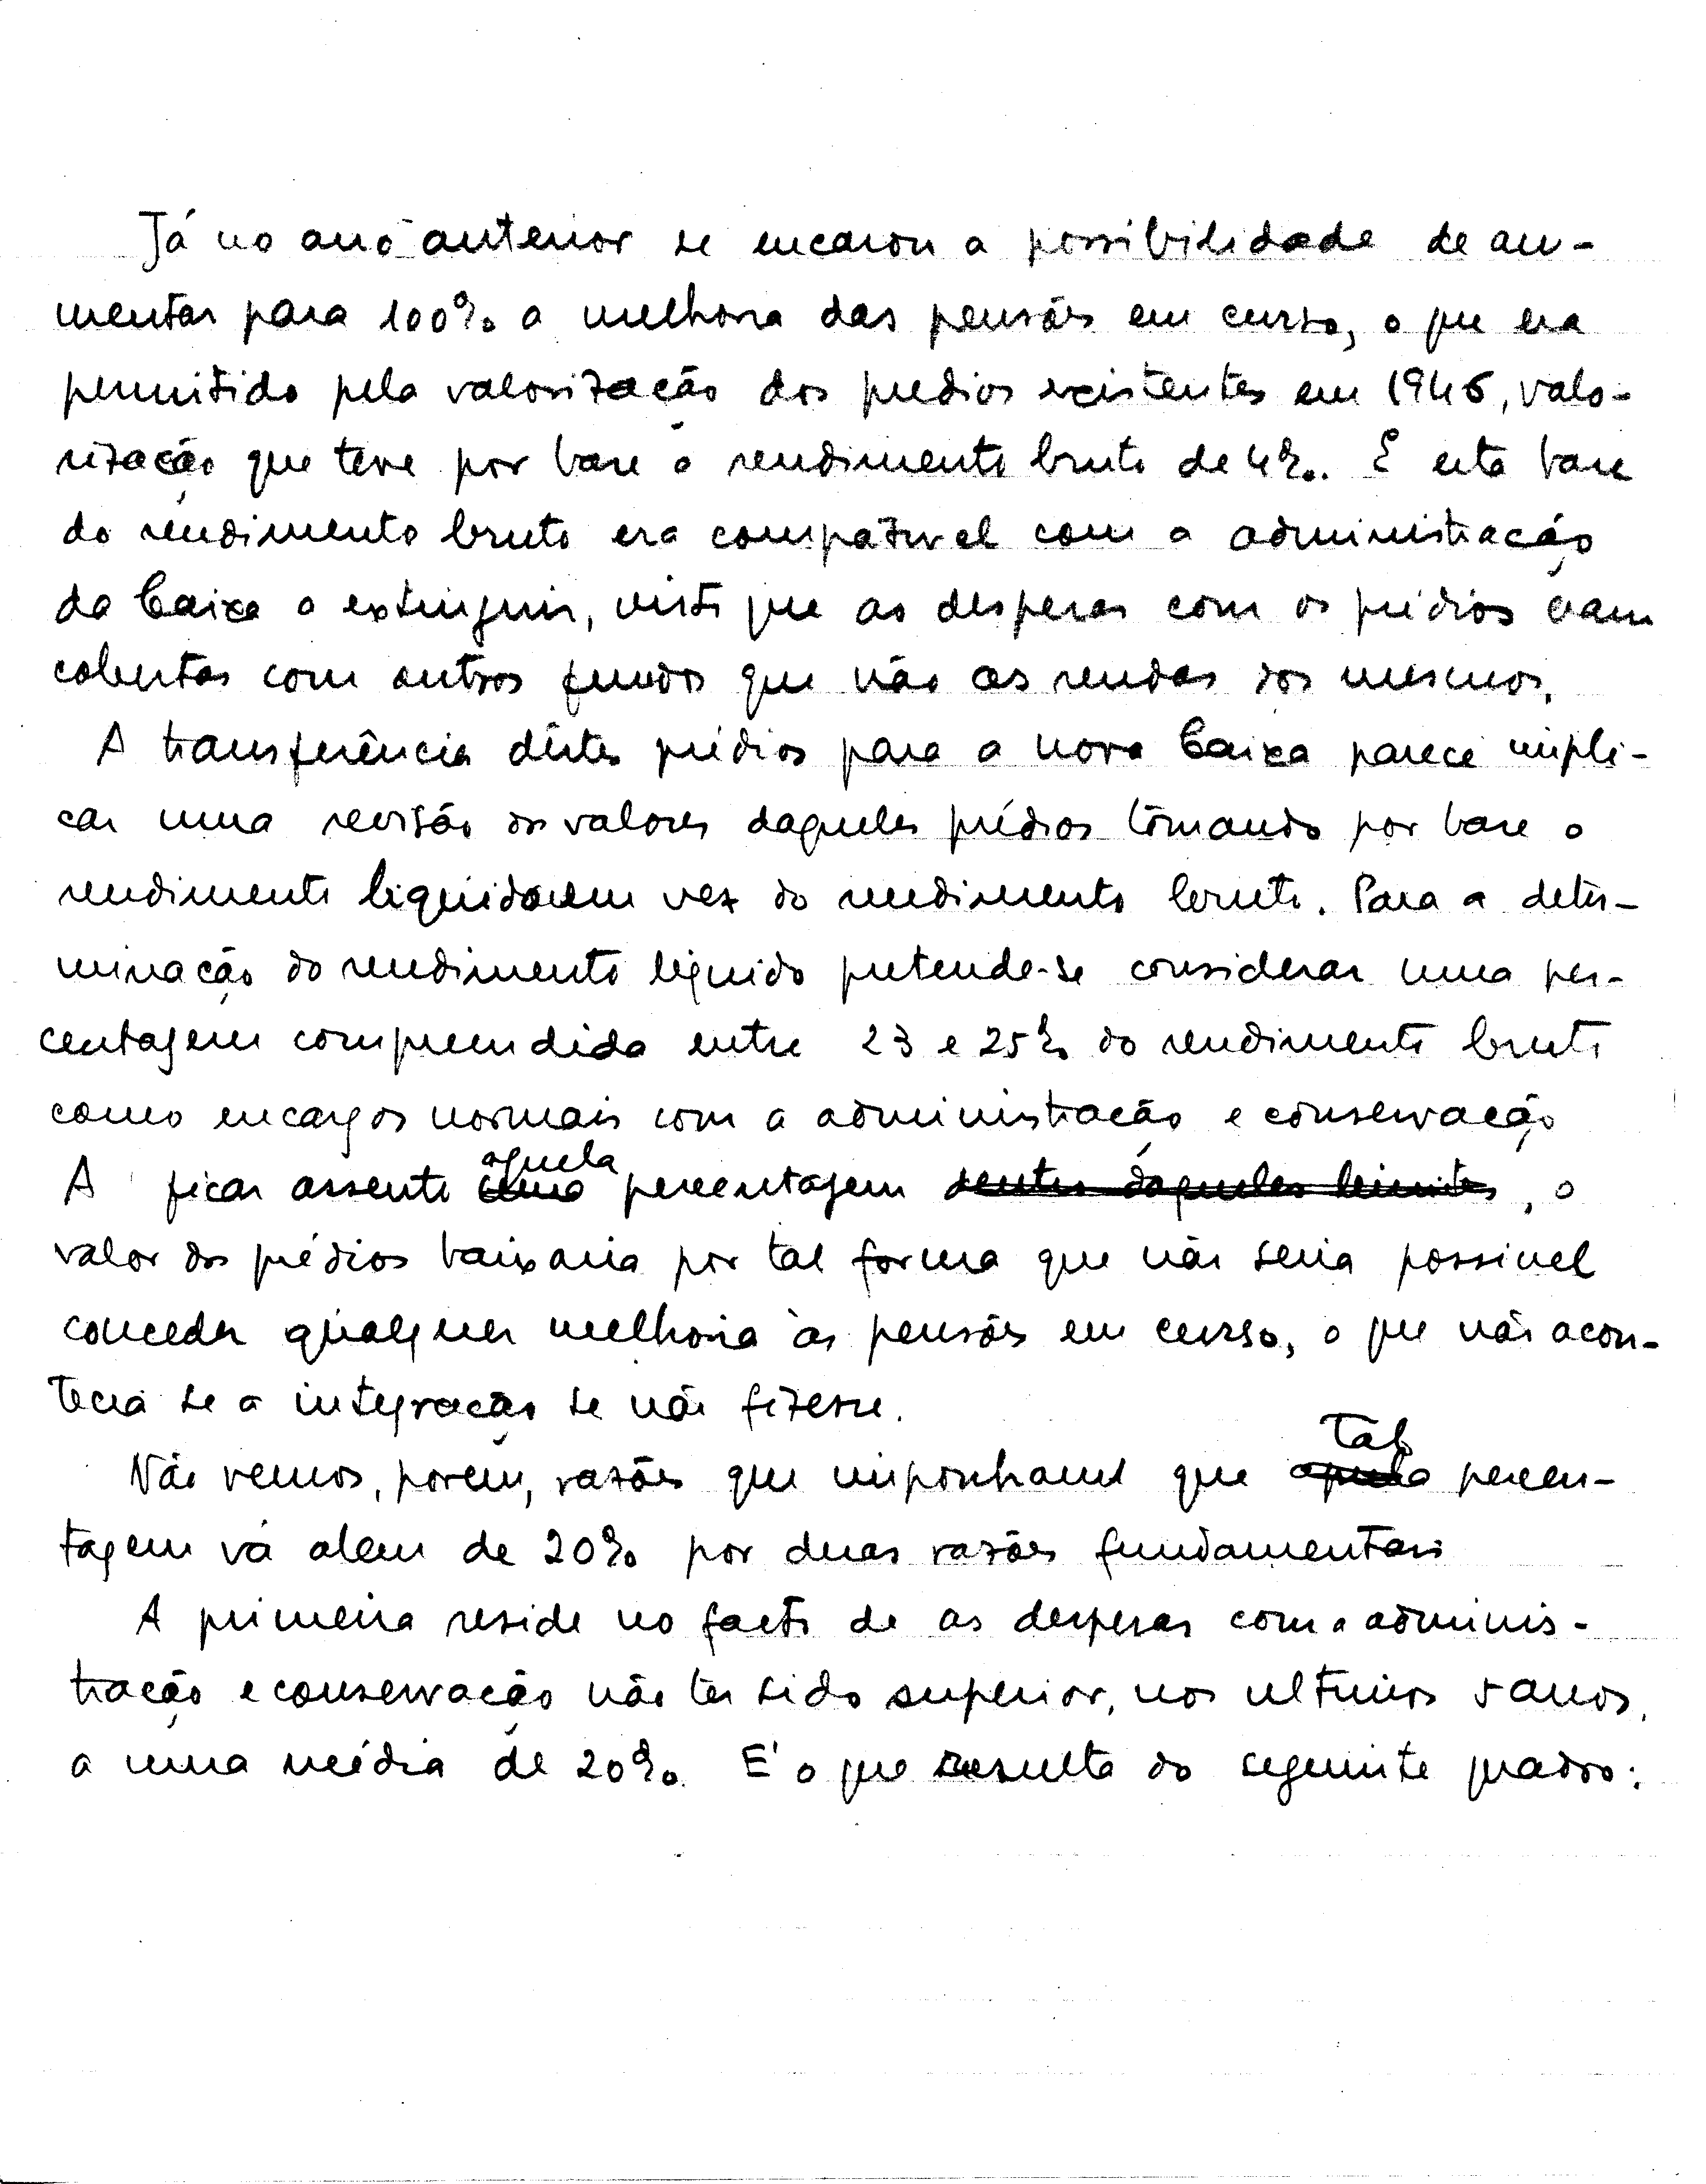 Já no ano anterior se encarou a possibilidade de au-
mentar para 100% a melhoria das pensões em curso, o que era
permitido pela valorização dos predios existentes em 1946, valo-
rização que teve por base o rendimento bruto de 4%. E esta base
do rendimento bruto era compatível com a administração
da Caixa a extinguir, visto que as despesas com os prédios eram
cobertas com outros fundos que não as rendas dos mesmos.
A transferência dêstes prédios para a nova Caixa parece impli-
car uma revisão dos valores daqueles prédios tomando por base o
rendimento liquido em vez do rendimento bruto. Para a deter-
minação do rendimento liquido pretende-se considerar uma per-
centagem compreendida entre 23 e 25% do rendimento bruto
como encargos normais com a administração e conservação
A ficar assente uma aquela percentagem dentro daqueles limites, o
valor dos prédios baixaria por tal forma que não seria possivel
conceder qualquer melhoria às pensões em curso, o que não acon-
tecia se a integração se não fizesse.
Não vemos, porém, razões que imponham que aquela Tal percen-
tagem vá alem de 20% por duas razões fundamentais
A primeira reside no facto de as despesas com a adminis-
tração e conservação não ter sido superior, nos ultimos 5 anos,
a uma média de 20%. E' o que resulta do seguinte quadro: